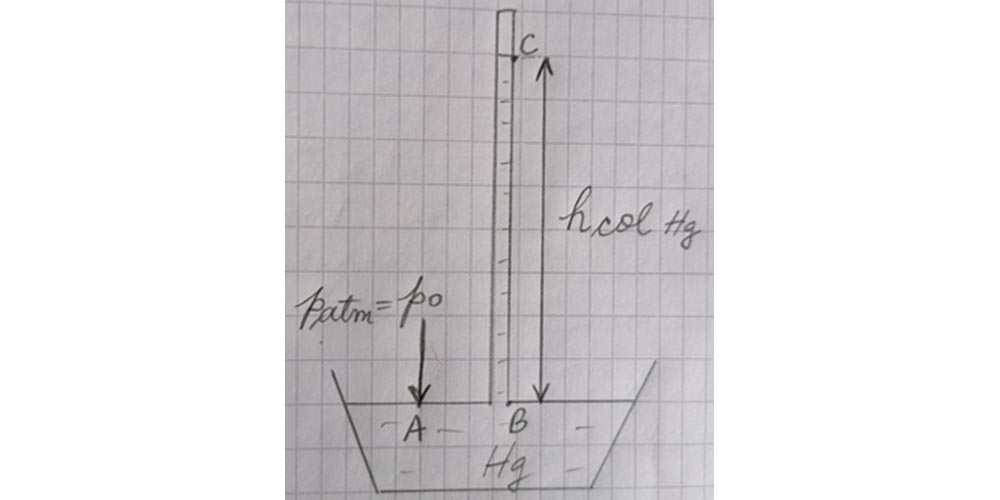 C
hcol Hg
patm = po
A
B
Hg